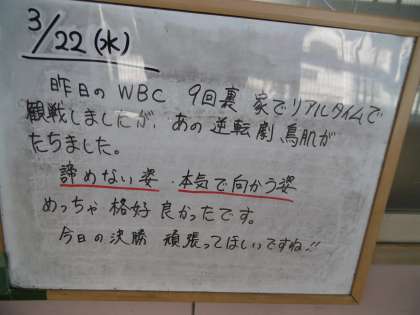 3/22(水)
昨日のWBC 9回裏 家でリアルタイムで
観戦しましたが、あの逆転劇、鳥肌が
たちました。
諦めない姿・本気で向かう姿
めっちゃ格好良かったです。
今日の決勝 頑張ってほしいですね!!